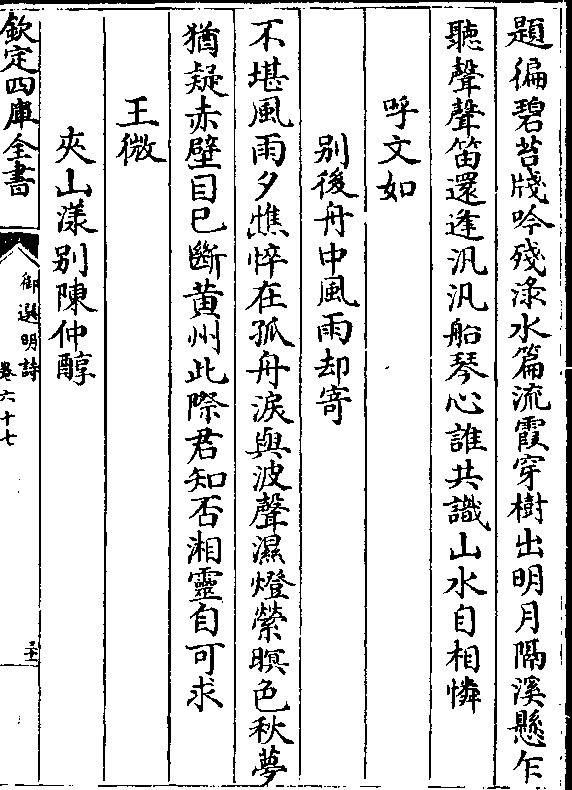 題徧碧苔牋吟殘渌水篇流霞穿樹出明月隔溪懸乍
聽聲聲笛還逢汎汎船琴心誰共識山水自相憐
呼文如
别後舟中風雨却寄
不堪風雨夕憔悴在孤舟淚與波聲濕燈縈暝色秋夢
猶疑赤壁目已斷黄州此際君知否湘靈自可求
王微
夾山漾别陳仲醇
欽定四庫全書
御選明詩
卷六十七